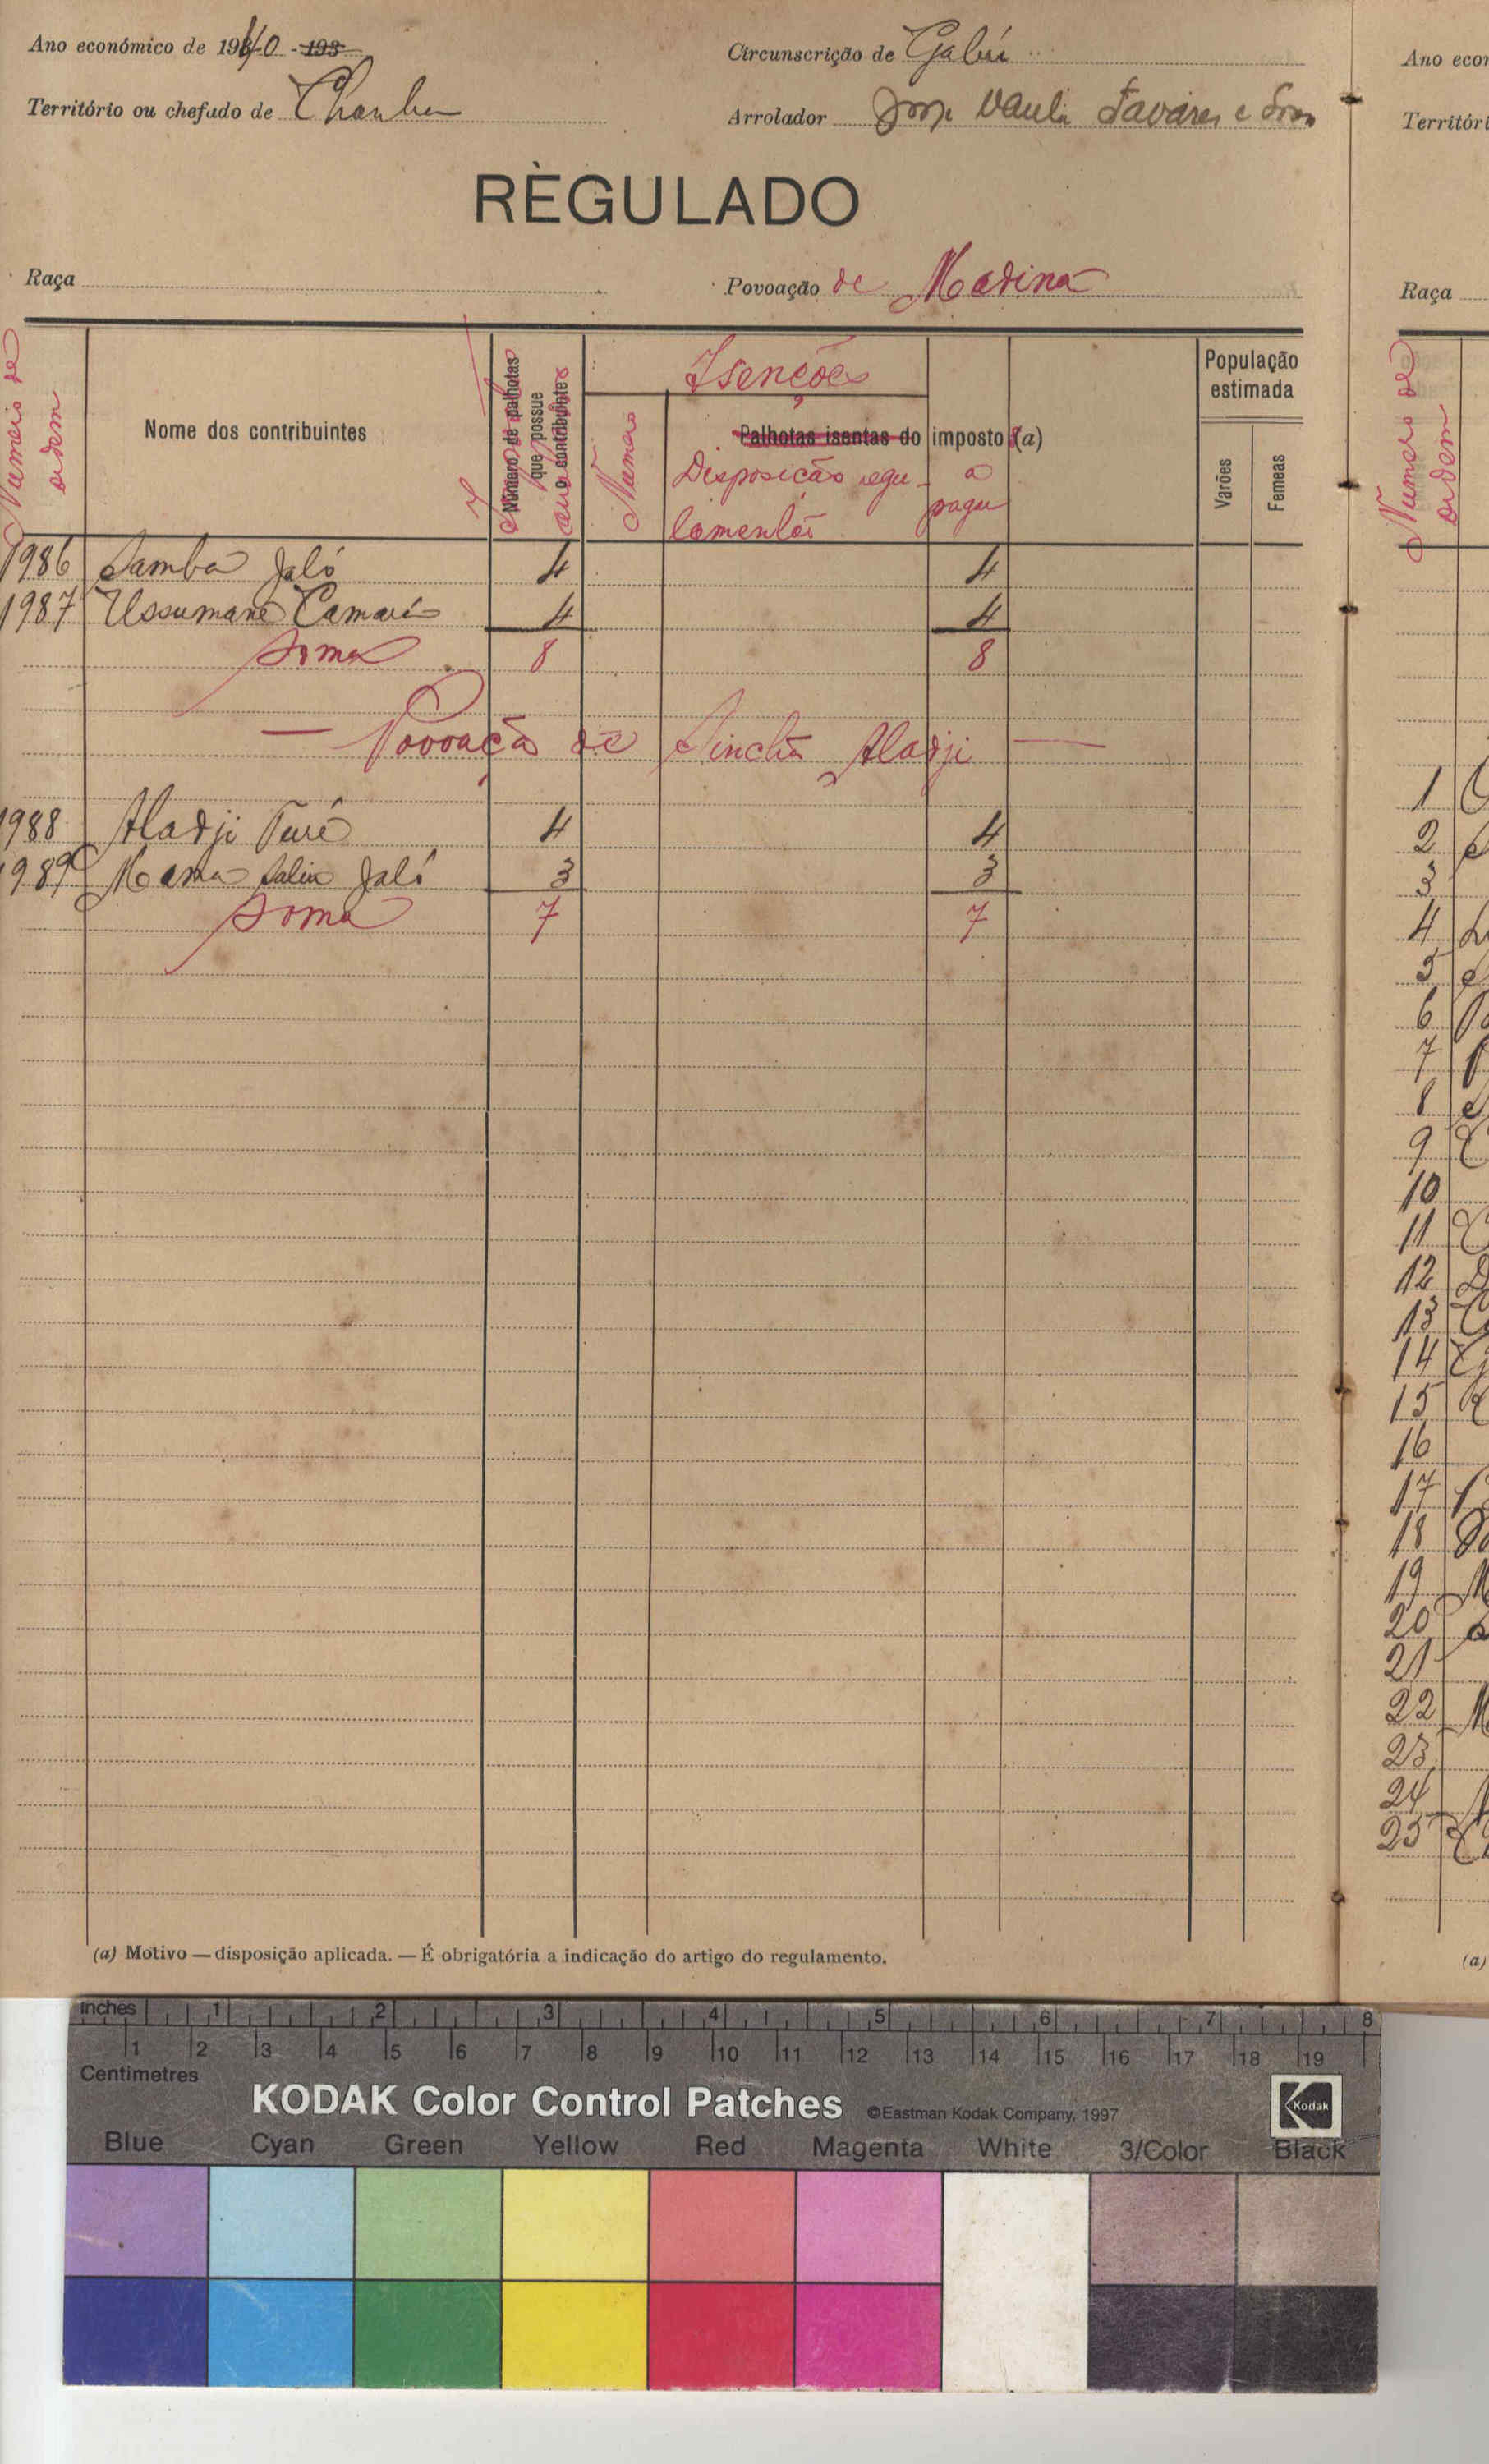 Ano económico de 1940 - 193
Circunscrição de Gabú
Território ou chefado de Chanha
Arrolador José Tavares e
RÈGULADO
Raça
Povoação de Madina
Numero de ordem
Nome dos contribuintes
Número de palhotas que possue o contribuinte
Isenções
Numero
Palhotas isentas do imposto (a)
Disposição regu-
lamentar
a pagar
População estimada
Varões
Femeas
1986 Samba Jaló 4 4
1987 Ussumane Camará 4 4
Soma 8 8
— Povoação de Sinchã Aladji —
1988 Aladji Turé 4 4
1989 Mama Saliu Jaló 3 3
Soma 7 7
(a) Motivo — disposição aplicada. — É obrigatória a indicação do artigo do regulamento.
Ano econ
Territóri
Raça
Numero de ordem
1
2
3
4
5
6
7
8
9
10
11
12
13
14
15
16
17
18
19
20
21
22
23
24
25
(a)
Inches 1 2 3 4 5 6 7 8
1 2 3 4 5 6 7 8 9 10 11 12 13 14 15 16 17 18 19
Centimetres
KODAK Color Control Patches ©Eastman Kodak Company, 1997 Kodak
Blue Cyan Green Yellow Red Magenta White 3/Color Black